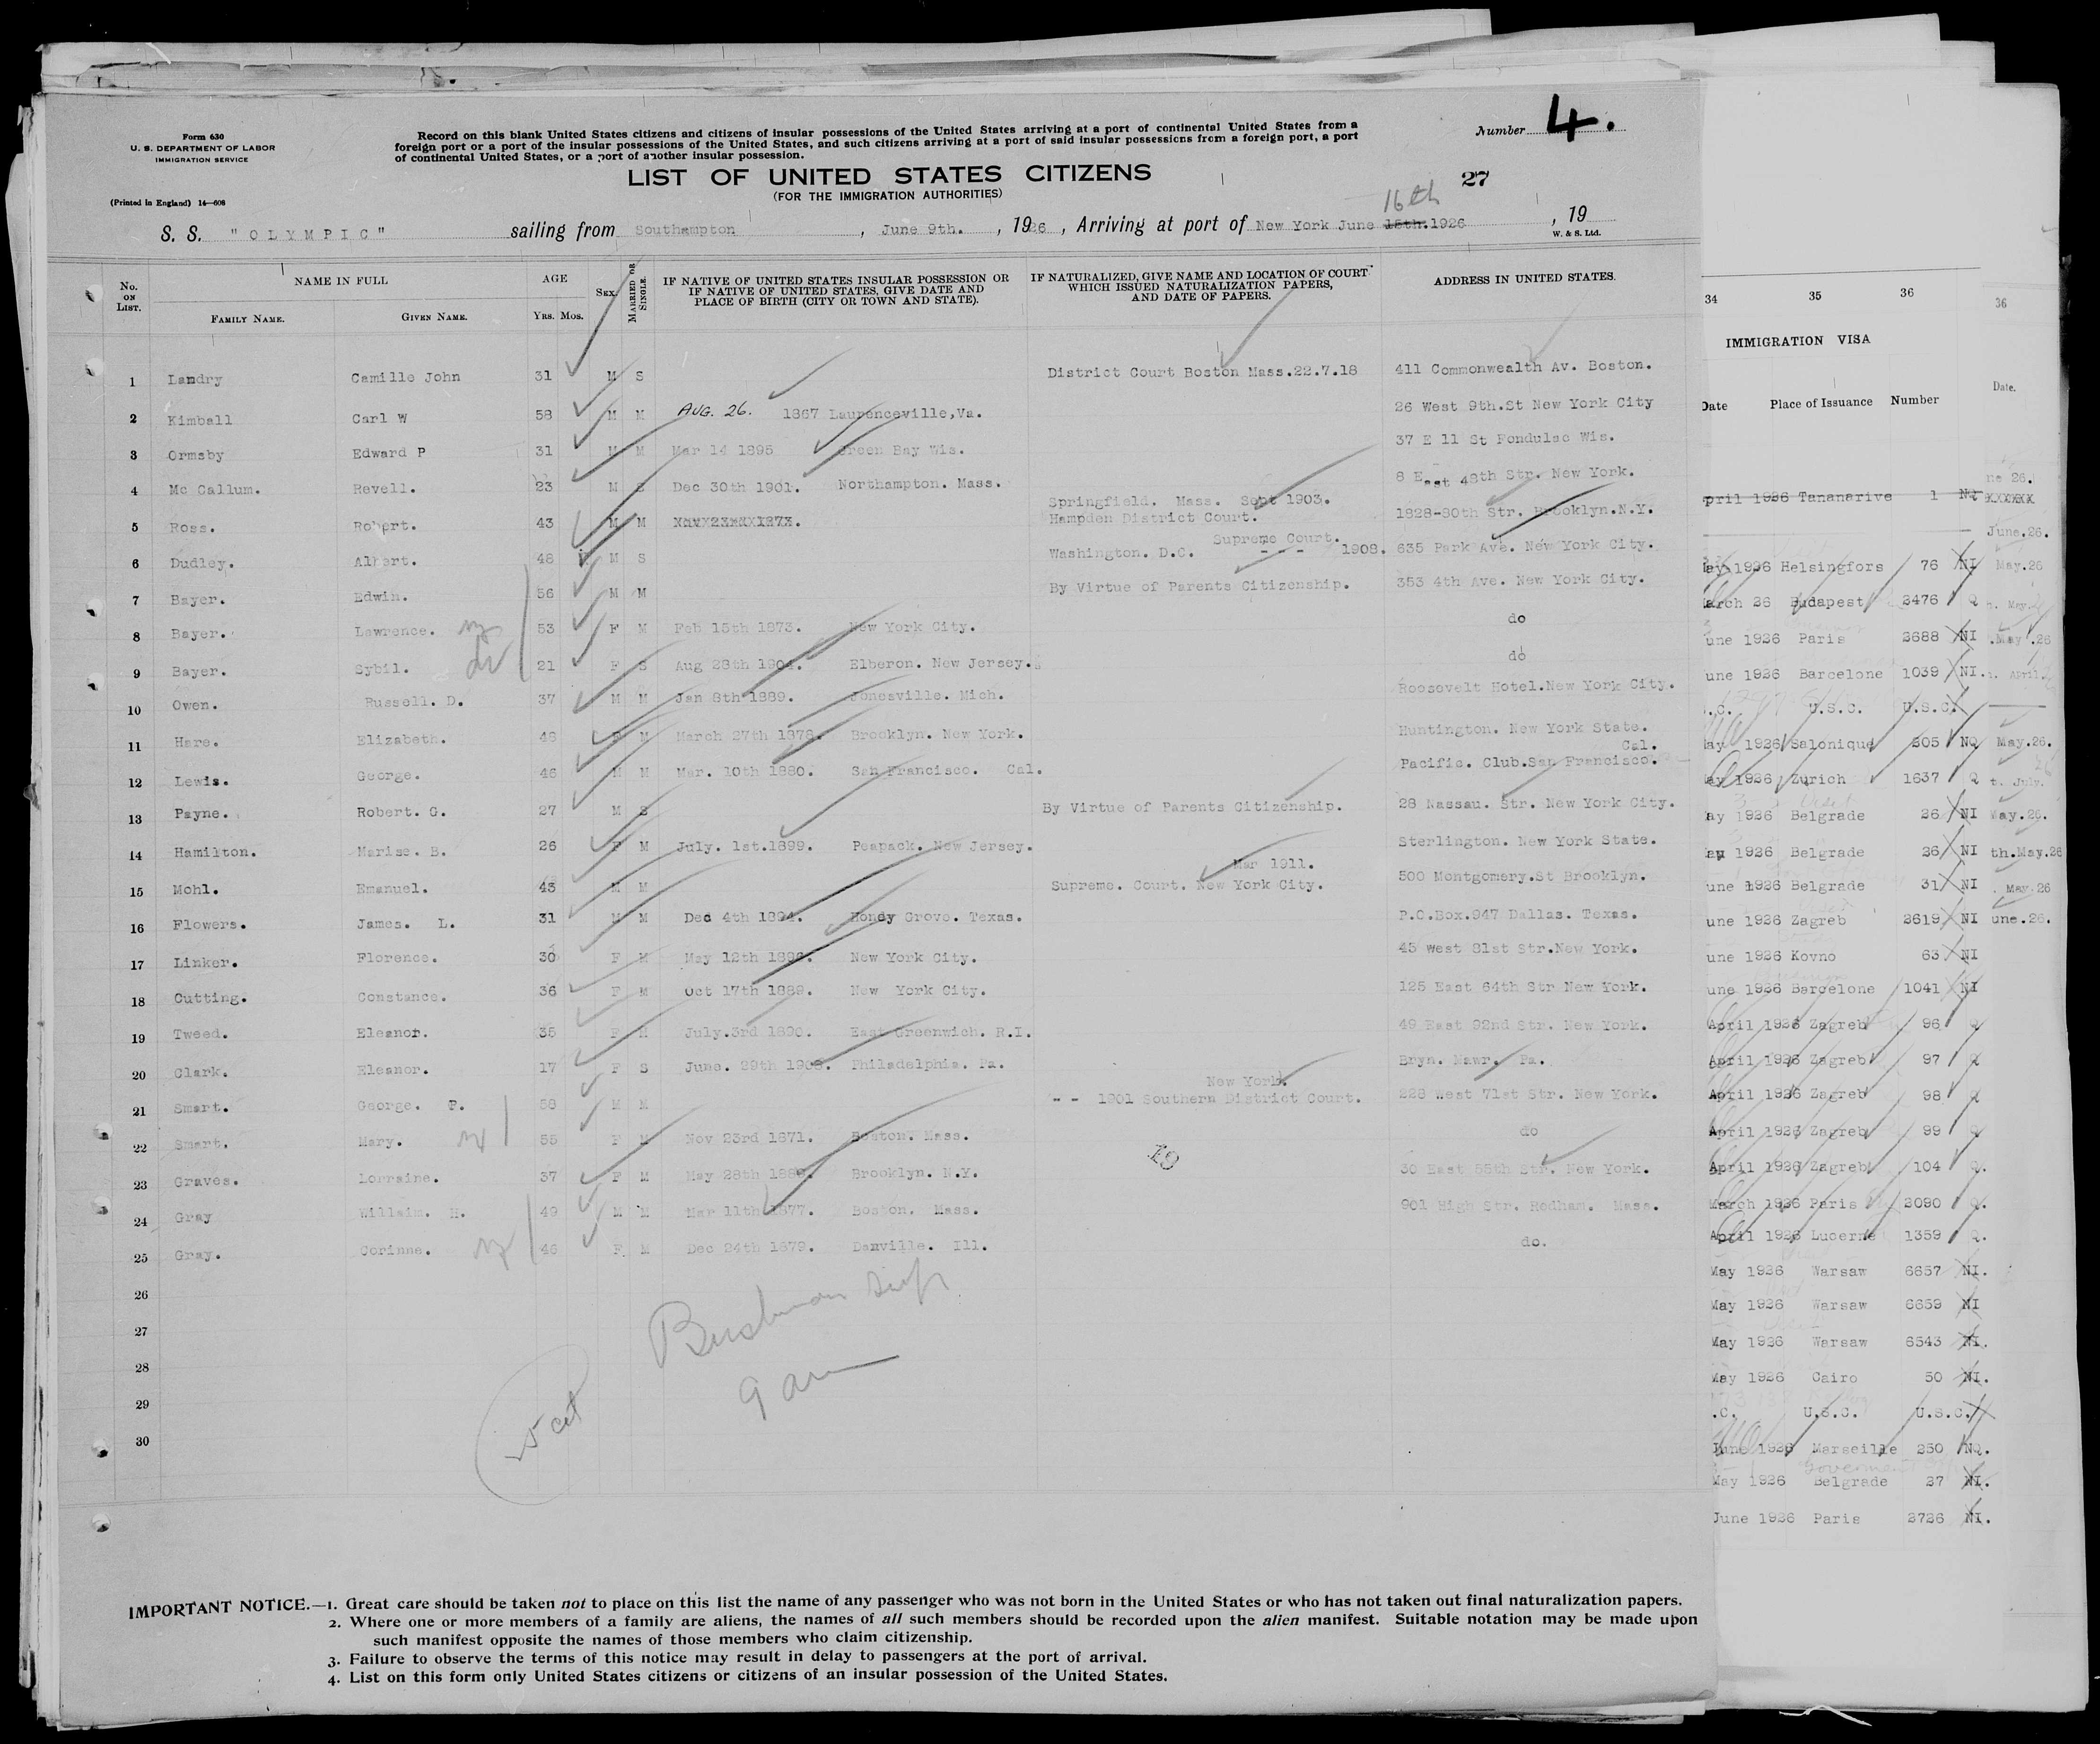 Form 630
U. S. DEPARTMENT OF LABOR
IMMIGRATION SERVICE
(Printed in England) 14—608
Record on this blank United States citizens and citizens of insular possessions of the United States arriving at a port of continental United States from a
foreign port or a port of the insular possessions of the United States, and such citizens arriving at a port of said insular possessions from a foreign port, a port
of continental United States, or a port of another insular possession.
Number 4.
LIST OF UNITED STATES CITIZENS
(FOR THE IMMIGRATION AUTHORITIES)
27
16th
S. S. "OLYMPIC" sailing from Southampton, June 9th., 1926, Arriving at port of New York June 15th.1926, 19
W. & S. Ltd.
No. ON LIST. NAME IN FULL AGE SEX. MARRIED OR SINGLE. IF NATIVE OF UNITED STATES INSULAR POSSESSION OR IF NATIVE OF UNITED STATES, GIVE DATE AND PLACE OF BIRTH (CITY OR TOWN AND STATE). IF NATURALIZED, GIVE NAME AND LOCATION OF COURT WHICH ISSUED NATURALIZATION PAPERS, AND DATE OF PAPERS. ADDRESS IN UNITED STATES.
FAMILY NAME. GIVEN NAME. YRS. MOS.
1 Landry Camille John 31 M S District Court Boston Mass.22.7.18 411 Commonwealth Av. Boston.
2 Kimball Carl W 58 M M AUG. 26. 1867 Laurenceville,Va. 26 West 9th.St New York City
3 Ormsby Edward P 31 M M Mar 14 1895 Green Bay Wis. 37 E 11 St Fondulac Wis.
4 Mc Callum. Revell. 23 M S Dec 30th 1901. Northampton. Mass. 8 East 48th Str. New York.
5 Ross. Robert. 43 M M Springfield. Mass. Sept 1903. Hampden District Court. 1828-80th Str. Brooklyn.N.Y.
6 Dudley. Albert. 48 M S Washington. D.C. Supreme Court. --- 1908. 635 Park Ave. New York City.
7 Bayer. Edwin. 56 M M By Virtue of Parents Citizenship. 353 4th Ave. New York City.
8 Bayer. Lawrence. 53 F M Feb 15th 1873. New York City. do
9 Bayer. Sybil. 21 F S Aug 28th 1904. Elberon. New Jersey. do
10 Owen. Russell. D. 37 M M Jan 8th 1889. Jonesville. Mich. Roosovelt Hotel.New York City.
11 Hare. Elizabeth. 48 F M March 27th 1878. Brooklyn. New York. Huntington. New York State.
12 Lewis. George. 46 M M Mar. 10th 1880. San Francisco. Cal. Pacific. Club.San Francisco. Cal.
13 Payne. Robert. G. 27 M S By Virtue of Parents Citizenship. 28 Nassau. Str. New York City.
14 Hamilton. Marise. B. 26 F M July. 1st.1899. Peapack. New Jersey. Sterlington. New York State.
15 Mohl. Emanuel. 43 M M Mar 1911. Supreme. Court. New York City. 500 Montgomery.St Brooklyn.
16 Flowers. James. L. 31 M M Dec 4th 1894. Hondy Grove. Texas. P.O.Box.947 Dallas. Texas.
17 Linker. Florence. 30 F M May 12th 1896. New York City. 45 West 81st Str.New York.
18 Cutting. Constance. 36 F M Oct 17th 1889. New York City. 125 East 64th Str New York.
19 Tweed. Eleanor. 35 F M July.3rd 1890. East Greenwich. R.I. 49 East 92nd Str. New York.
20 Clark. Eleanor. 17 F S June. 29th 1908. Philadelphia. Pa. Bryn. Mawr. Pa.
21 Smart. George. P. 58 M M New York. -- 1901 Southern District Court. 228 West 71st Str. New York.
22 Smart. Mary. 55 F M Nov 23rd 1871. Boston. Mass. do
23 Graves. Lorraine. 37 F M May 28th 1889. Brooklyn. N.Y. 30 East 55th Str. New York.
24 Gray Willaim. H. 49 M M Mar 11th 1877. Boston. Mass. 901 High Str. Redham. Mass.
25 Gray. Corinne. 46 F M Dec 24th 1879. Danville. Ill. do.
26
27
28
29
30
19
5 cit
9 am
IMPORTANT NOTICE.—1. Great care should be taken not to place on this list the name of any passenger who was not born in the United States or who has not taken out final naturalization papers.
2. Where one or more members of a family are aliens, the names of all such members should be recorded upon the alien manifest. Suitable notation may be made upon
such manifest opposite the names of those members who claim citizenship.
3. Failure to observe the terms of this notice may result in delay to passengers at the port of arrival.
4. List on this form only United States citizens or citizens of an insular possession of the United States.
34 35 36
IMMIGRATION VISA
Date Place of Issuance Number
pril 1926 Tananarive 1 NQ
ay 1926 Helsingfors 76 NI
arch 26 Budapest 3476 Q
une 1926 Paris 2688 NI
une 1926 Barcelone 1039 NI.
.C. U.S.C. U.S.C.
ay 1926 Salonique 305 NQ
ay 1926 Zurich 1637 Q
ay 1926 Belgrade 26 NI
ay 1926 Belgrade 36 NI
une 1926 Belgrade 31 NI
une 1926 Zagreb 3619 NI
une 1926 Kovno 63 NI
une 1926 Barcelone 1041 NI
April 1926 Zagreb 96 Q
April 1926 Zagreb 97 Q
April 1926 Zagreb 98 Q
April 1926 Zagreb 99 Q
April 1926 Zagreb 104 Q.
March 1926 Paris 3090 Q.
April 1926 Lucerne 1359 Q.
May 1926 Warsaw 6657 NI.
May 1926 Warsaw 6659 NI
May 1926 Warsaw 6543 NI.
May 1926 Cairo 50 NI.
.C. U.S.C. U.S.C.
June 1926 Marseille 350 NQ.
May 1926 Belgrade 37 NI.
June 1926 Paris 2726 NI.
36
Date.
ne 26.
XXXXXX
June.26.
May.26
May.26
April.
May.26.
t. July.
May.26.
th.May.26
May.26
une.26.